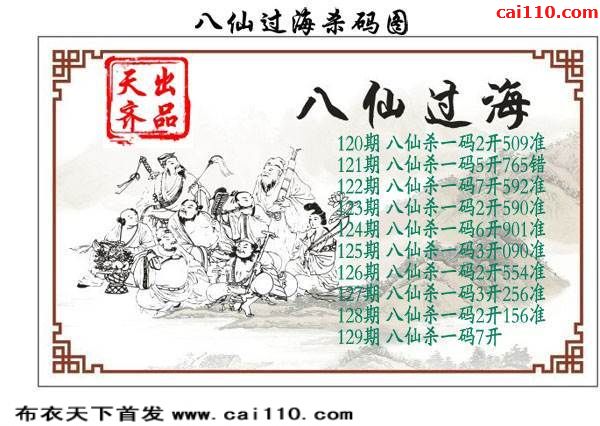 八仙过海杀码图
cai110.com
天出
齐品
八仙过海
120期 八仙杀一码2开509准
121期 八仙杀一码5开765错
122期 八仙杀一码7开592准
123期 八仙杀一码2开590准
124期 八仙杀一码6开901准
125期 八仙杀一码3开090准
126期 八仙杀一码2开554准
127期 八仙杀一码3开256准
128期 八仙杀一码2开156准
129期 八仙杀一码7开
布衣天下首发 www.cai110.com